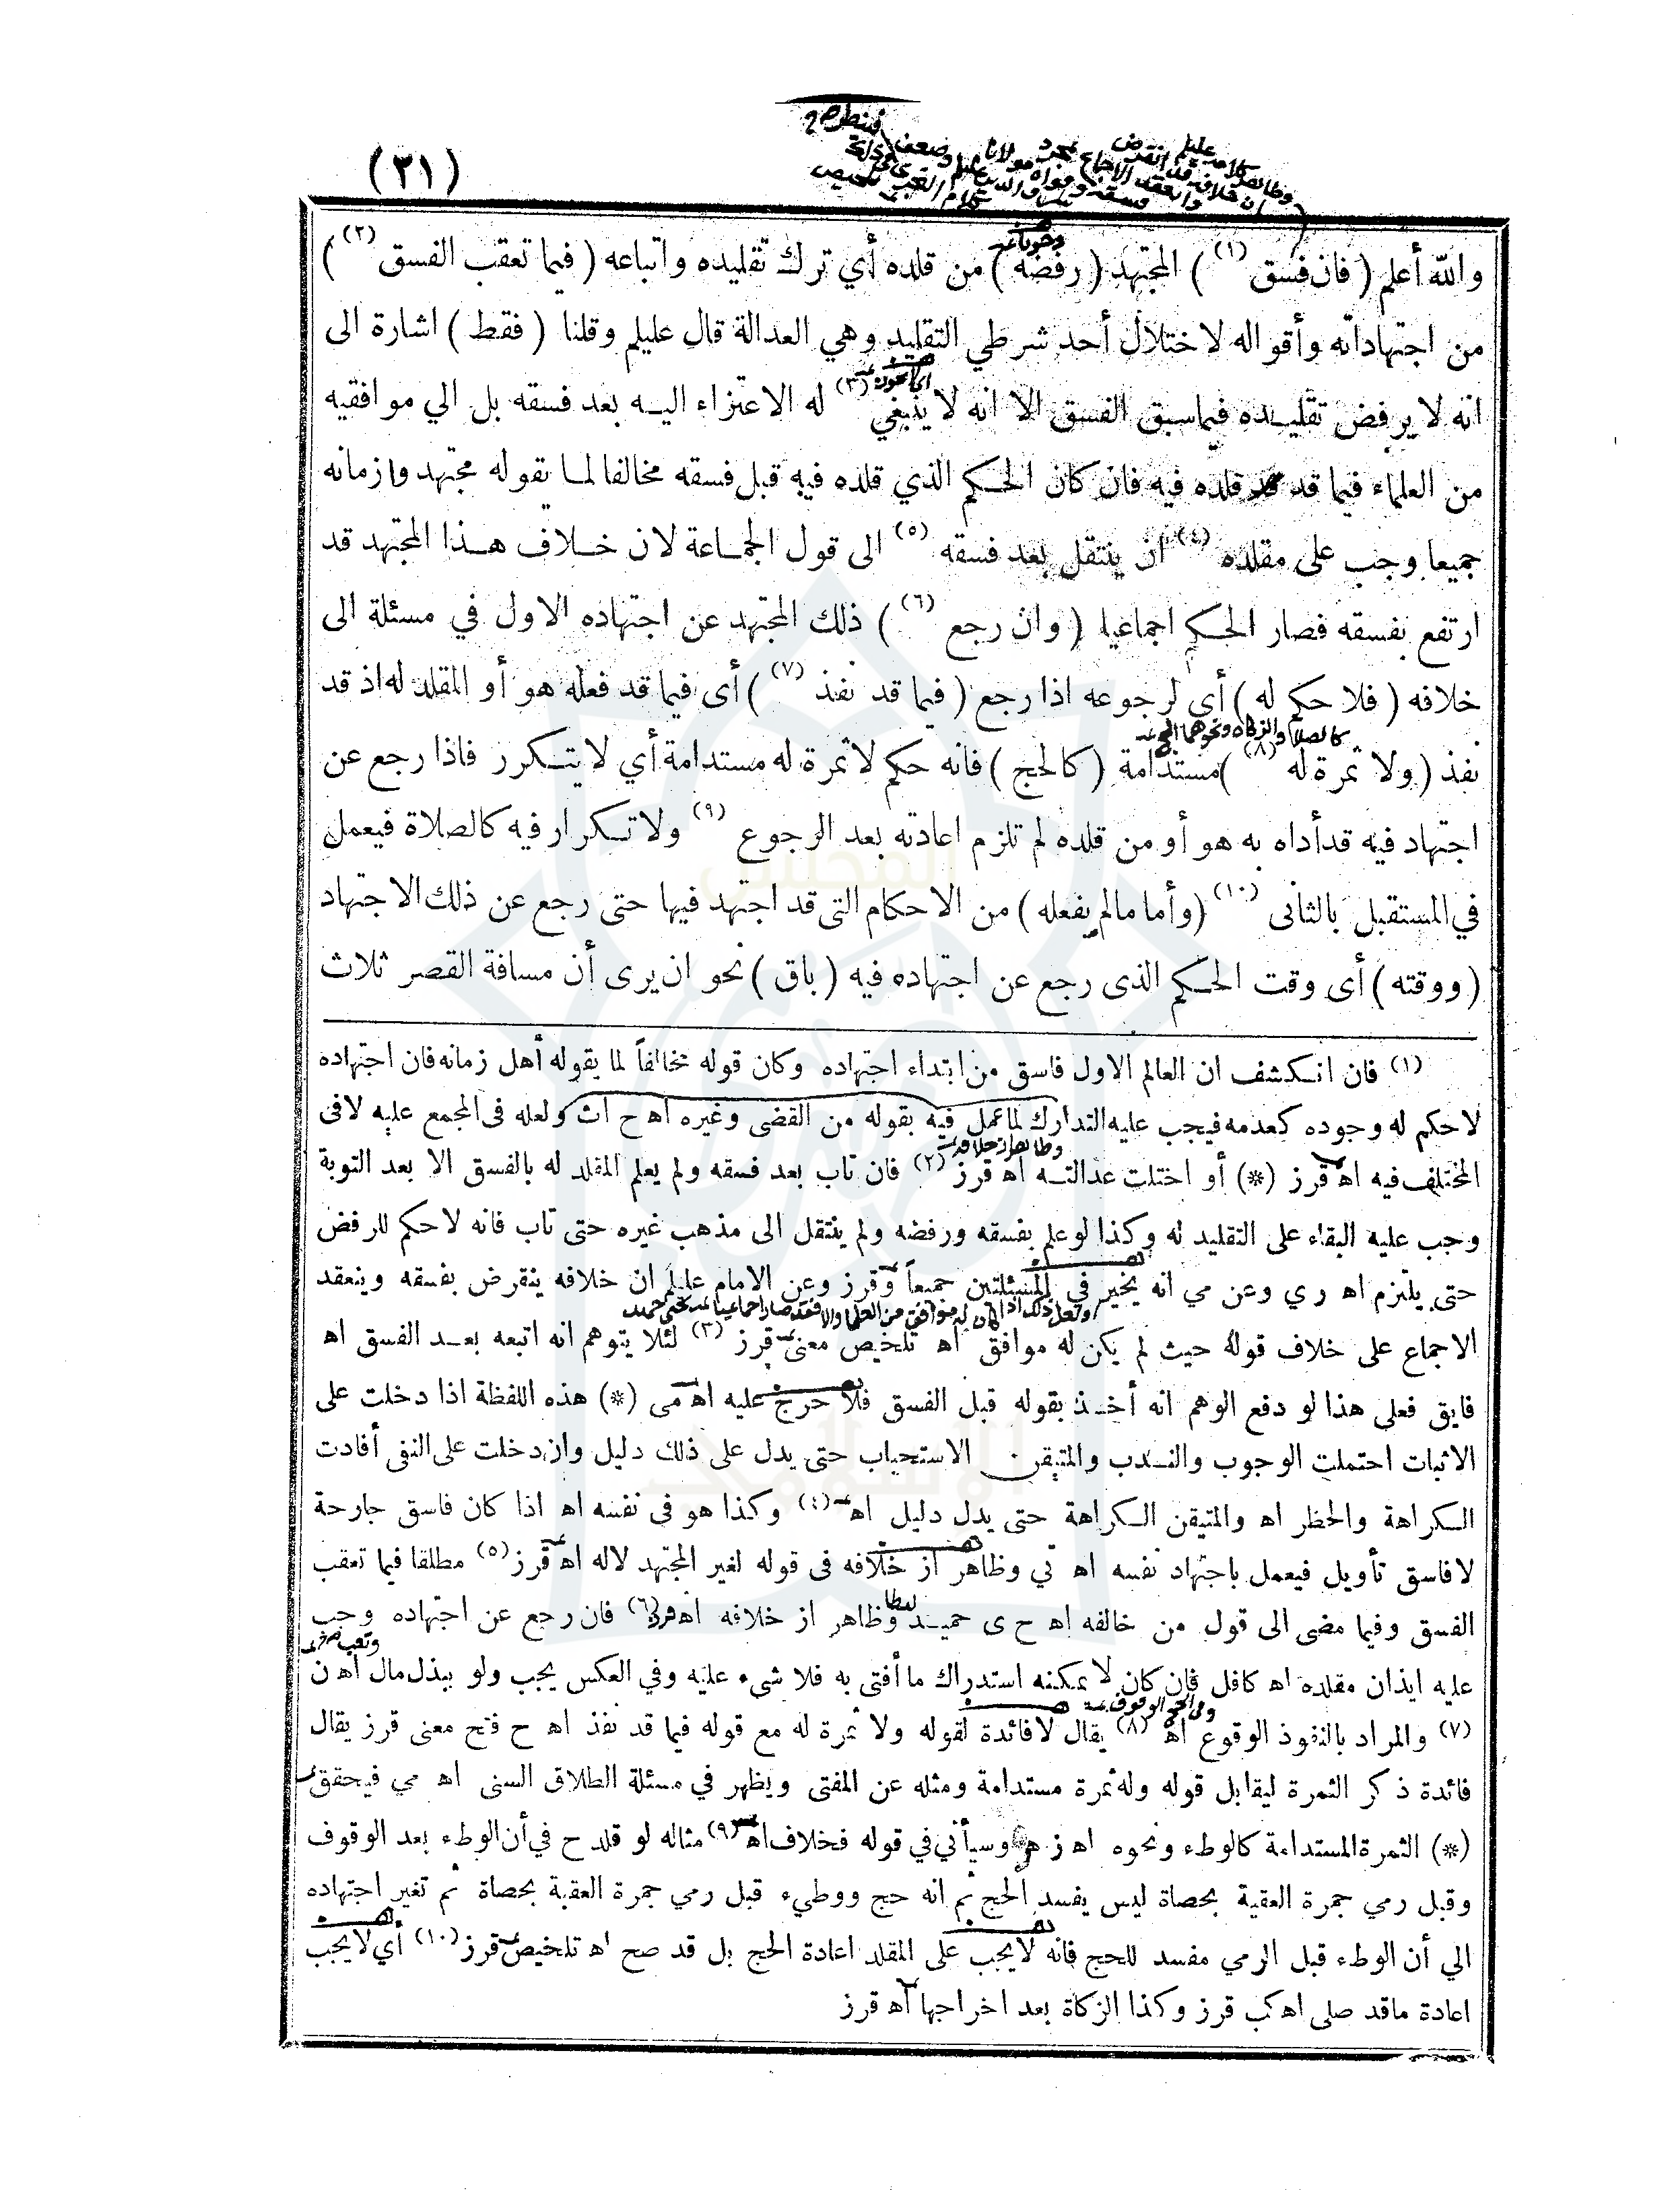 (٣١)
والله أعلم (فان فسق (١)) المجتهد (رفضه) من قلده أي ترك تقليده واتباعه (فيما تعقب الفسق (٢))
من اجتهاداته وأقواله لاختلال أحد شرطي التقليد وهي العدالة قال عليلم وقلنا (فقط) اشارة الى
انه لا يرفض تقليده فيما سبق الفسق الا انه لا ينبغي (٣) له الاعتزاء اليه بعد فسقه بل الي موافقيه
من العلماء فيما قد قلده فيه فان كان الحكم الذي قلده فيه قبل فسقه مخالفا لما يقوله مجتهد وازمانه
جميعا وجب على مقلده (٤) أن ينتقل بعد فسقه (٥) الى قول الجماعة لان خلاف هذا المجتهد قد
ارتفع بفسقه فصار الحكم اجماعيا (وان رجع (٦)) ذلك المجتهد عن اجتهاده الاول في مسئلة الى
خلافه (فلا حكم له) أي لرجوعه اذا رجع (فيما قد نفذ (٧)) أى فيما قد فعله هو أو المقلد له اذ قد
كالصلاة والزكاة ونحوهما
نفذ (ولا ثمرة له (٨)) مستدامة (كالحج) فانه حكم لا ثمرة له مستدامة أي لا يتكرر فاذا رجع عن
اجتهاد فيه قد أداه به هو أو من قلده لم تلزم اعادته بعد الرجوع (٩) ولا تكرار فيه كالصلاة فيعمل
في المستقبل بالثانى (١٠) (وأما مالم يفعله) من الاحكام التى قد اجتهد فيها حتى رجع عن ذلك الاجتهاد
(ووقته) أى وقت الحكم الذى رجع عن اجتهاده فيه (باق) نحو ان يرى أن مسافة القصر ثلاث
(١) فان انكشف ان العالم الاول فاسق من ابتداء اجتهاده وكان قوله مخالفاً لما يقوله أهل زمانه فان اجتهاده
لا حكم له وجوده كعدمه فيجب عليه التدارك لما عمل فيه بقوله من القضى وغيره اه ح اث ولعله فى المجمع عليه لا فى
المختلف فيه اه قرز (*) أو اختلت عدالته اه قرز (٢) فان تاب بعد فسقه ولم يعلم المقلد له بالفسق الا بعد التوبة
وجب عليه البقاء على التقليد له وكذا لو علم بفسقه ورفضه ولم ينتقل الى مذهب غيره حتى تاب فانه لا حكم للرفض
حتى يلتزم اه ري وعن مي انه يخير في المسئلتين جميعاً وقرز وعن الامام عليلم ان خلافه ينقرض بفسقه وينعقد
الاجماع على خلاف قوله حيث لم يكن له موافق اه تلخيص معنى قرز (٣) لئلا يتوهم انه اتبعه بعد الفسق اه
فايق فعلى هذا لو دفع الوهم انه أخذ بقوله قبل الفسق فلا حرج عليه اه مى (*) هذه اللفظة اذا دخلت على
الاثبات احتملت الوجوب والندب والمتيقن الاستحباب حتى يدل على ذلك دليل وان دخلت على النفى أفادت
الكراهة والحظر اه والمتيقن الكراهة حتى يدل دليل اه (٤) وكذا هو فى نفسه اه اذا كان فاسق جارحة
لا فاسق تأويل فيعمل باجتهاد نفسه اه تي وظاهر از خلافه فى قوله لغير المجتهد لا له اه قرز (٥) مطلقا فيما تعقب
الفسق وفيما مضى الى قول من خالفه اه ح ى حميد وظاهر از خلافه اه قرز (٦) فان رجع عن اجتهاده وجب
عليه ايذان مقلده اه كافل فان كان لا يمكنه استدراك ما أفتى به فلا شيء عليه وفي العكس يجب ولو ببذل مال اه ن
(٧) والمراد بالنفوذ الوقوع اه (٨) يقال لا فائدة لقوله ولا ثمرة له مع قوله فيما قد نفذ اه ح فتح معنى قرز يقال
فائدة ذكر الثمرة ليقابل قوله وله ثمرة مستدامة ومثله عن المفتى ويظهر في مسئلة الطلاق السنى اه مي فيحقق
(*) الثمرة المستدامة كالوطء ونحوه اه ز هر وسيأتي في قوله فخلاف اه (٩) مثاله لو قلد ح في أن الوطء بعد الوقوف
وقبل رمي جمرة العقبة بحصاة ليس يفسد الحج ثم انه حج ووطيء قبل رمي جمرة العقبة بحصاة ثم تغير اجتهاده
الي أن الوطء قبل الرمي مفسد للحج فانه لا يجب على المقلد اعادة الحج بل قد صح اه تلخيص قرز (١٠) أي لا يجب
اعادة ماقد صلى اه كب قرز وكذا الزكاة بعد اخراجها اه قرز